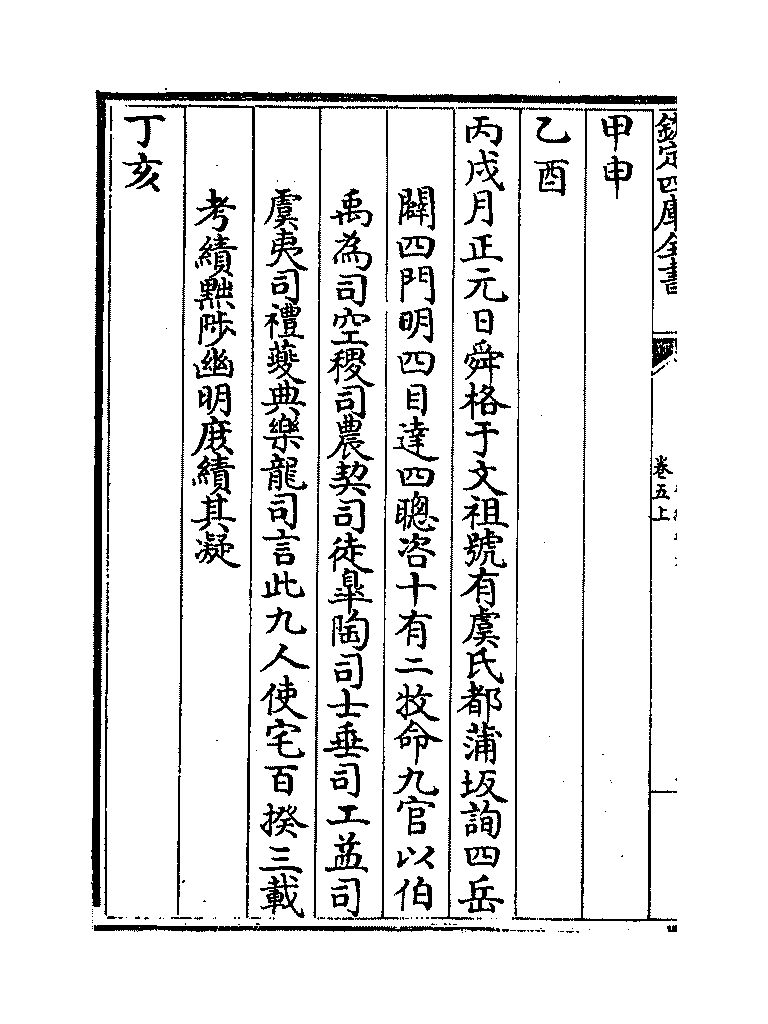 欽定四庫全書
卷五上
甲申
乙酉
丙戌月正元日舜格于文祖號有虞氏都蒲坂詢四岳
闢四門明四目達四聰咨十有二牧命九官以伯
禹為司空稷司農契司徒臯陶司士垂司工益司
虞夷司禮夔典樂龍司言此九人使宅百揆三載
考績黜陟幽明庶績其凝
丁亥